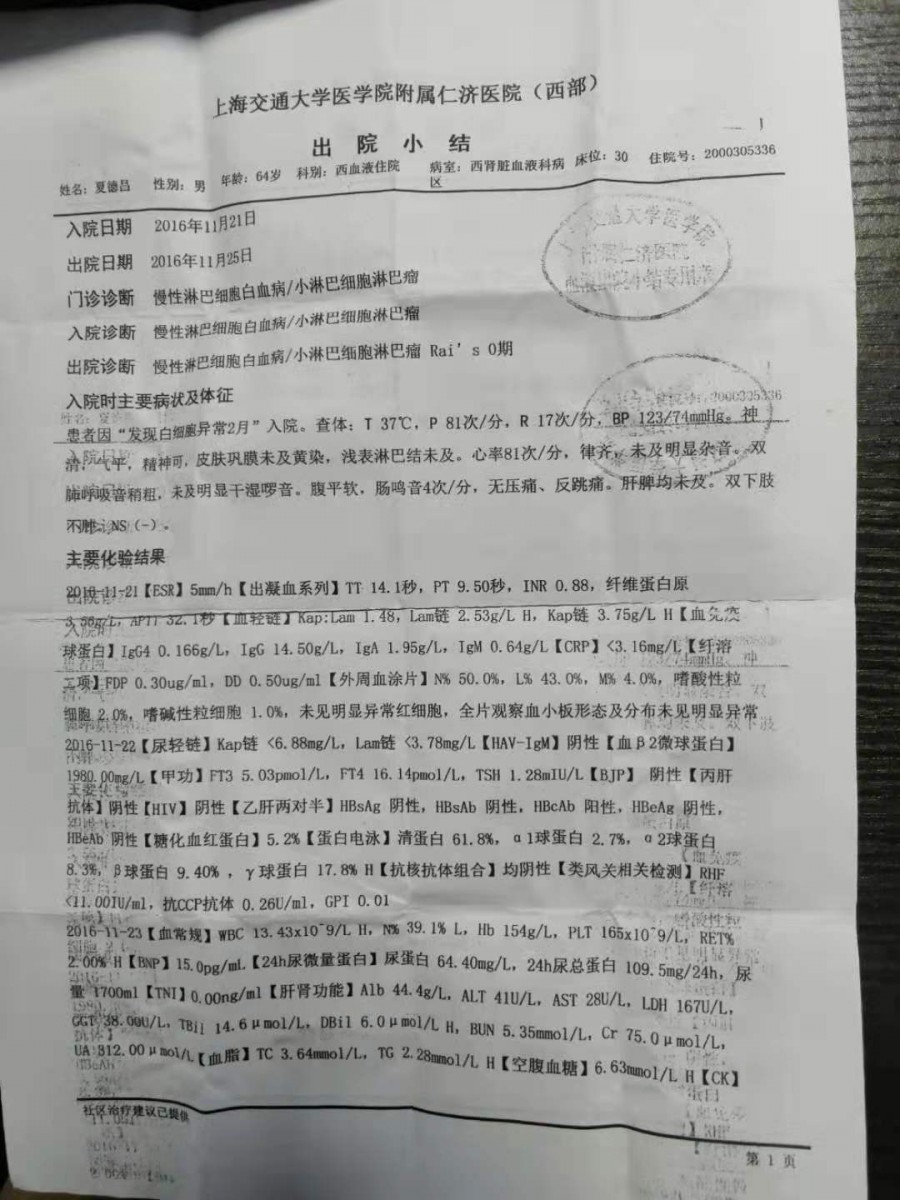 上海交通大学医学院附属仁济医院（西部）
出 院 小 结
姓名：夏德昌 性别：男 年龄：64岁 科别：西血液住院 病室：西肾脏血液科病区 床位：30 住院号：2000305336
入院日期 2016年11月21日
出院日期 2016年11月25日
门诊诊断 慢性淋巴细胞白血病/小淋巴细胞淋巴瘤
入院诊断 慢性淋巴细胞白血病/小淋巴细胞淋巴瘤
出院诊断 慢性淋巴细胞白血病/小淋巴细胞淋巴瘤 Rai's 0期
入院时主要病状及体征
患者因“发现白细胞异常2月”入院。查体：T 37℃，P 81次/分，R 17次/分，BP 123/74mmHg。神
清，气平，精神可，皮肤巩膜未及黄染，浅表淋巴结未及。心率81次/分，律齐，未及明显杂音。双
肺呼吸音稍粗，未及明显干湿啰音。腹平软，肠鸣音4次/分，无压痛、反跳痛。肝脾均未及。双下肢
不肿，NS（-）。
主要化验结果
2016-11-21【ESR】5mm/h【出凝血系列】TT 14.1秒，PT 9.50秒，INR 0.88，纤维蛋白原
g/L，APTT 32.1秒【血轻链】Kap:Lam 1.48，Lam链 2.53g/L H，Kap链 3.75g/L H【血免疫
球蛋白】IgG4 0.166g/L，IgG 14.50g/L，IgA 1.95g/L，IgM 0.64g/L【CRP】<3.16mg/L【纤溶
二项】FDP 0.30ug/ml，DD 0.50ug/ml【外周血涂片】N% 50.0%，L% 43.0%，M% 4.0%，嗜酸性粒
细胞 2.0%，嗜碱性粒细胞 1.0%，未见明显异常红细胞，全片观察血小板形态及分布未见明显异常
2016-11-22【尿轻链】Kap链 <6.88mg/L，Lam链 <3.78mg/L【HAV-IgM】阴性【血β2微球蛋白】
1980.00mg/L【甲功】FT3 5.03pmol/L，FT4 16.14pmol/L，TSH 1.28mIU/L【BJP】 阴性【丙肝
抗体】阴性【HIV】阴性【乙肝两对半】HBsAg 阴性，HBsAb 阴性，HBcAb 阳性，HBeAg 阴性，
HBeAb 阴性【糖化血红蛋白】5.2%【蛋白电泳】清蛋白 61.8%，α1球蛋白 2.7%，α2球蛋白
8.3%，β球蛋白 9.40% ，γ球蛋白 17.8% H【抗核抗体组合】均阴性【类风关相关检测】RHF
<11.00IU/ml，抗CCP抗体 0.26U/ml，GPI 0.01
2016-11-23【血常规】WBC 13.43x10^9/L H，N% 39.1% L，Hb 154g/L，PLT 165x10^9/L，RET%
2.00% H【BNP】15.0pg/mL【24h尿微量蛋白】尿蛋白 64.40mg/L，24h尿总蛋白 109.5mg/24h，尿
量 1700ml【TNI】0.00ng/ml【肝肾功能】Alb 44.4g/L，ALT 41U/L，AST 28U/L，LDH 167U/L，
GGT 38.00U/L，TBil 14.6μmol/L，DBil 6.0μmol/L H，BUN 5.35mmol/L，Cr 75.0μmol/L，
UA 312.00μmol/L【血脂】TC 3.64mmol/L，TG 2.28mmol/L H【空腹血糖】6.63mmol/L H【CK】
社区治疗建议已提供
第 1 页